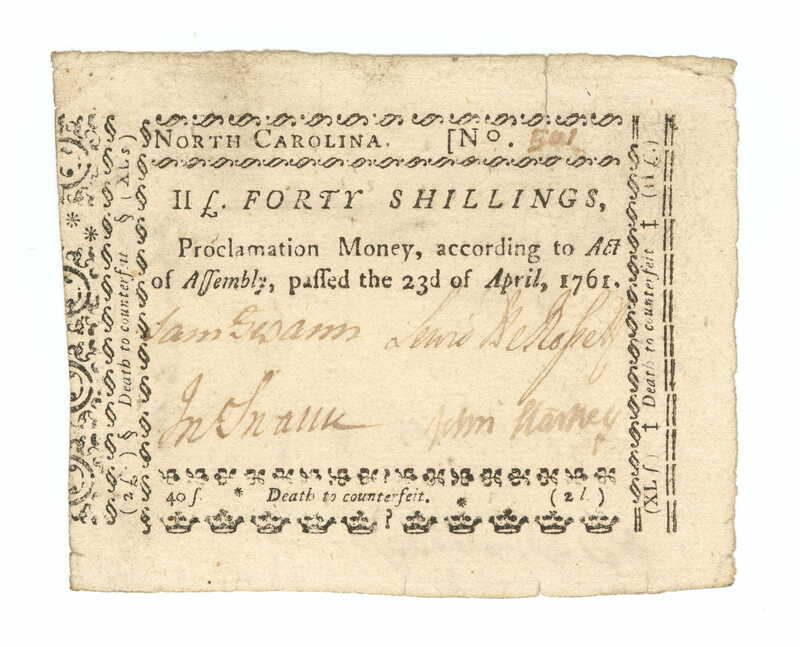 NORTH CAROLINA. [No. 501
II £. FORTY SHILLINGS,
Proclamation Money, according to Act
of Aſſembly, paſſed the 23d of April, 1761.
Sam Swann Lewis DeRoſſet
Jno Swann John Starkey
40 ſ. * Death to counterfeit. * (2 l.)
(2 £.) § Death to counterfeit § (XL s)
(XL ſ) ‡ Death to counterfeit ‡ (II £.)